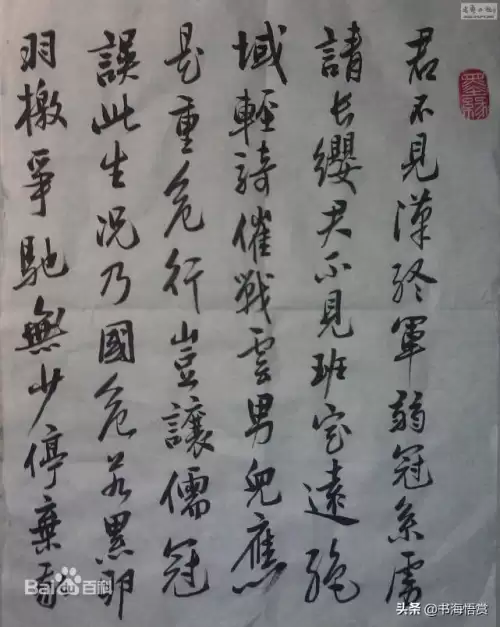 君不見漢終軍弱冠系虜
請長纓君不見班定遠絕
域輕騎催戰雲男兒應
是重危行豈讓儒冠
誤此生況乃國危若累卵
羽檄爭馳無少停棄我
Bai百科
头条 @书海悟赏